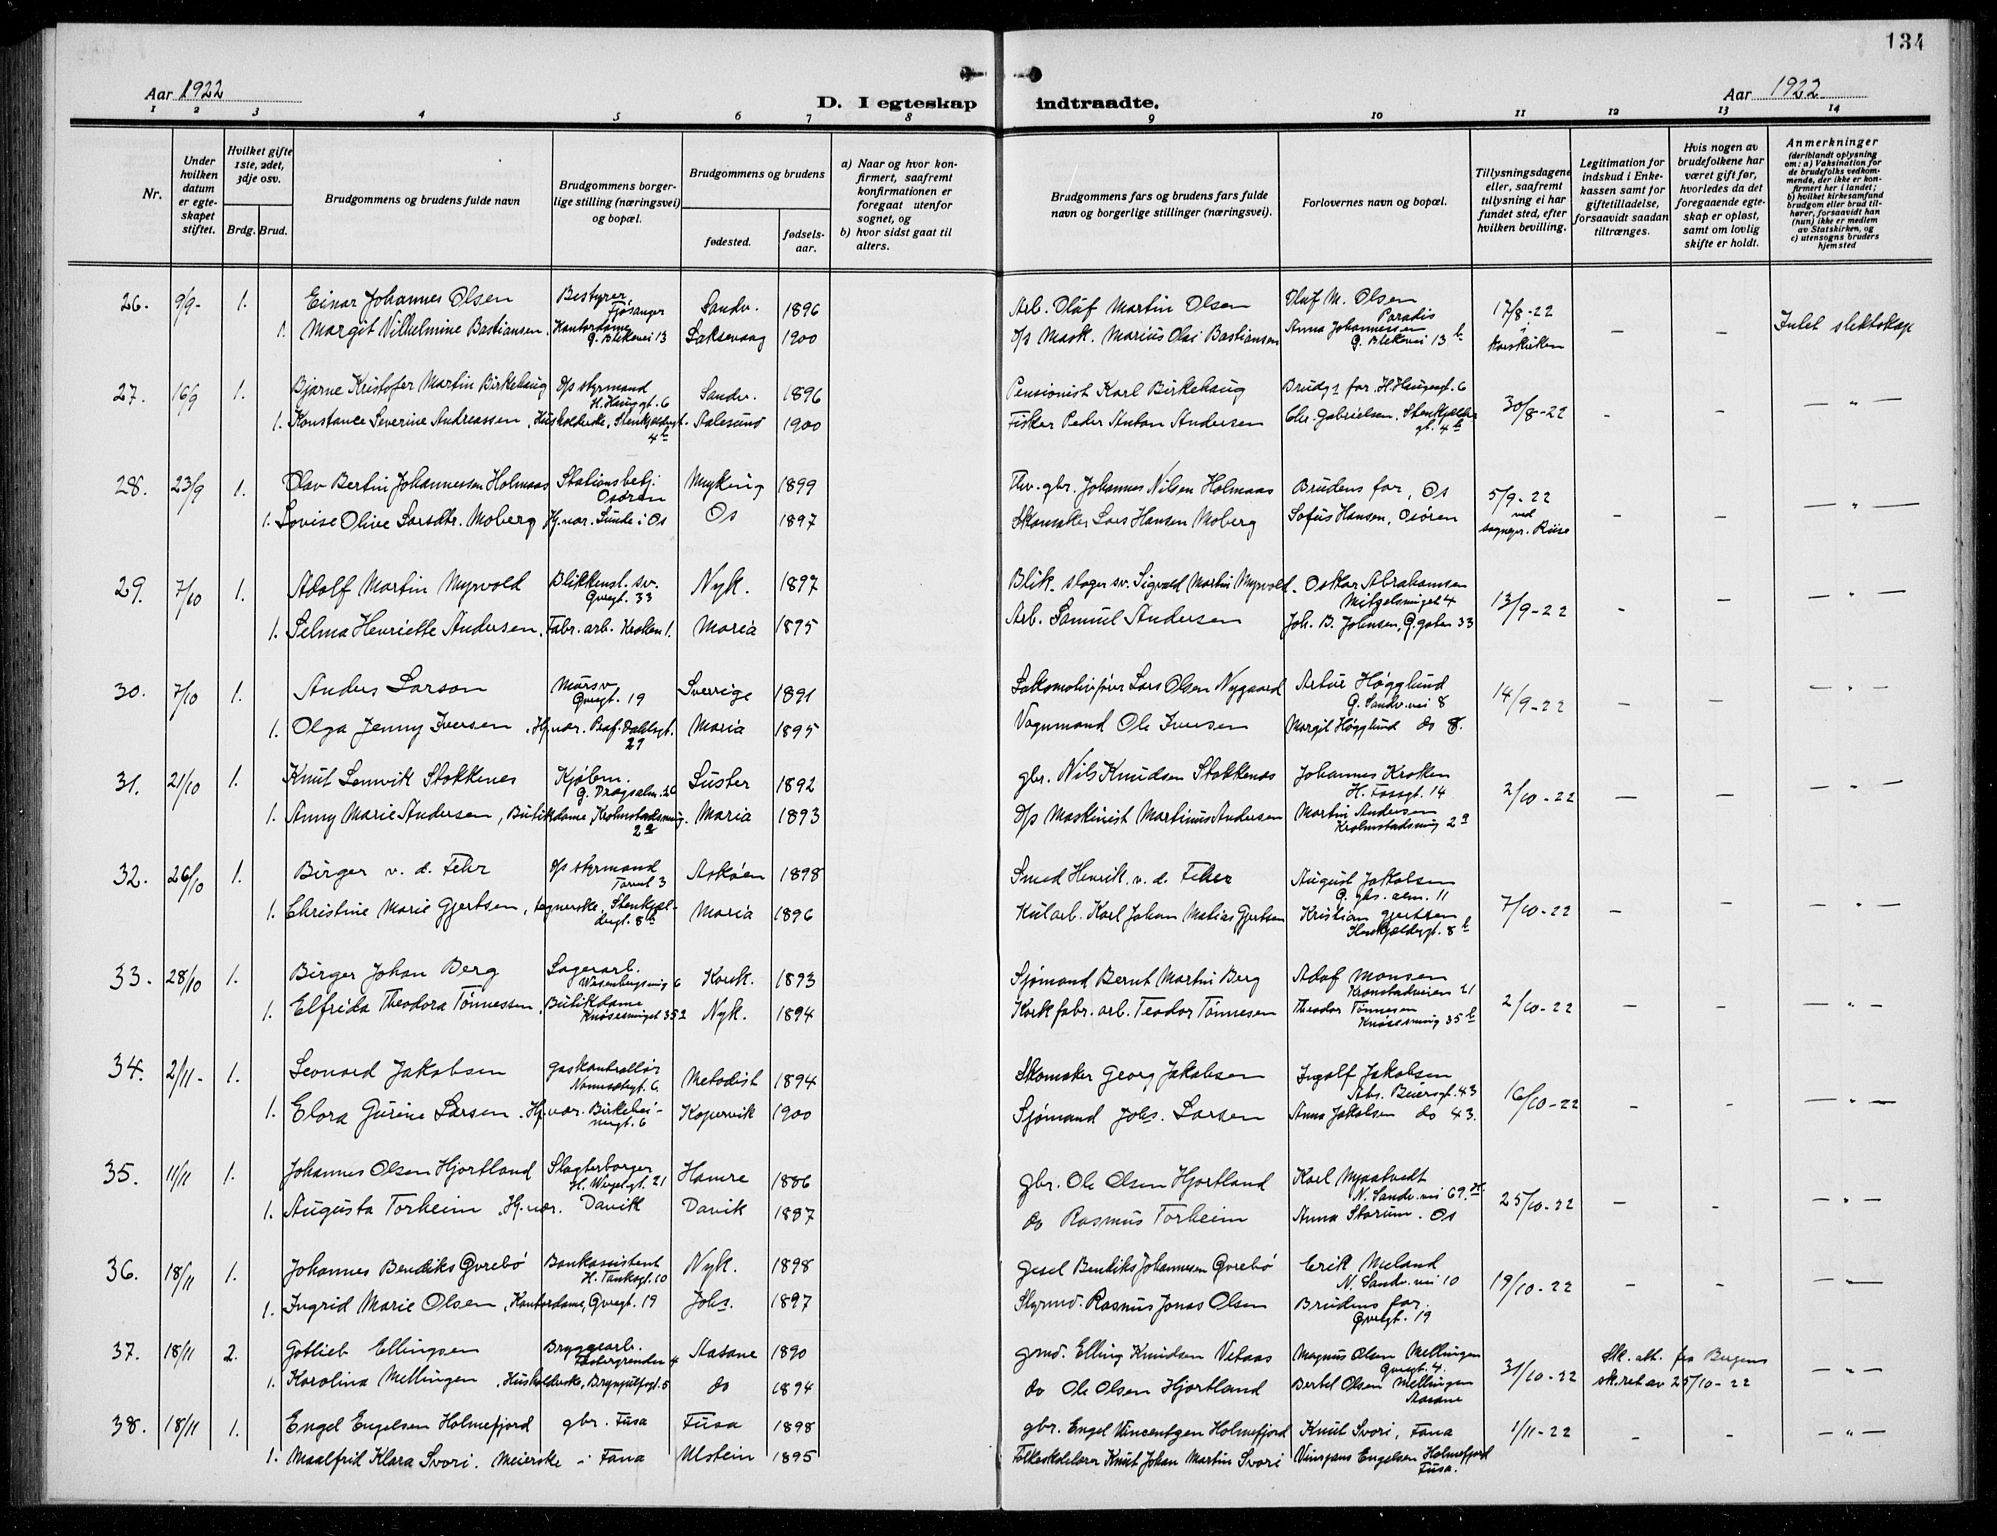 134
Aar 1922
D. I egteskap indtraadte.
Aar 1922
1 2 3 4 5 6 7 8 9 10 11 12 13 14
Nr.
Under hvilken datum er egteskapet stiftet.
Hvilket gifte 1ste, 2det, 3dje osv.
Brdg. Brud.
Brudgommens og brudens fulde navn
Brudgommens borgerlige stilling (næringsvei) og bopæl.
Brudgommens og brudens
fødested. fødselsaar.
a) Naar og hvor konfirmert, saafremt konfirmationen er foregaat utenfor sognet, og
b) hvor sidst gaat til alters.
Brudgommens fars og brudens fars fulde navn og borgerlige stillinger (næringsvei).
Forlovernes navn og bopæl.
Tillysningsdagene eller, saafremt tillysning ei har fundet sted, efter hvilken bevilling.
Legitimation for indskud i Enkekassen samt for giftetilladelse, forsaavidt saadan tiltrænges.
Hvis nogen av brudefolkene har været gift før, hvorledes da det foregaaende egteskap er opløst, samt om lovlig skifte er holdt.
Anmerkninger (deriblandt oplysning om: a) Vaksination for de brudefolks vedkommende, der ikke er konfirmert her i landet; b) hvilket kirkesamfund brudgom eller brud tilhører, forsaavidt han (hun) ikke er medlem av Statskirken, og c) utensogns bruders hjemsted
26. 9/9- 1. Einar Johannes Olsen Bestyrer Fjøsanger Sandv. 1896 Arb. Oluf Martin Olsen Oluf M. Olsen Paradis 17/8-22
1. Margit Vilhelmine Bastiansen, Kontordame G. Blekevei 13 Laksevaag 1900 d/s Mask. Marius Olai Bastiansen Anna Johannessen G. Blekevei 13 b Korskirken - - Intet slektskap
27. 16/9 1. Bjarne Kristofer Martin Birkehaug d/s styrmand H. Haugsgt. 6 Sandv. 1896 Pensionist Karl Birkehaug Brudg s far. H. Haugesgt. 6 30/8-22
1. Konstance Severine Andreassen, Husholderske, Stenkjeldergt. 4 b Aalesund 1900 Fisker Peder Anton Andersen Chr. Gabrielsen. Stenkjelder gt. 4 b - - - " -
28. 23/9 1. Olav Bertin Johannessen Holmaas Stationsbetj. Osøren Myking 1899 Thv. gbr. Johannes Nilsen Holmaas Brudens far, Os 5/9-22
1. Lovise Olive Larsdtr. Moberg Hj. vær. Sunde i Os Os 1897 Skomaker Lars Hansen Moberg Sofus Hansen, Osøren ved sognepr. Riise - - - " -
29. 7/10 1. Adolf Martin Myrvold Blikkensl. sv. Øvregt. 33 Nyk. 1897 Blik. slager sv. Sigvald Martin Myrvold Oskar Abrahamsen 13/9-22
1. Selma Henriette Andersen, Fabr. arb. Kroken 1. Maria 1895 Arb. Samuel Andersen Joh. B. Johnsen, Ø. gaten 33 - - - " -
30. 7/10 1. Anders Larson Mursv Øvregt. 19 Sverrige 1891 Lokomotivfører Lars Olsen Nygaard Artur Høgglund G. Sandv. vei 8 14/9-22
1. Olga Jenny Iversen, Hj. vær. Prof. Dahlsgt. 29 Maria 1895 Vognmand Ole Iversen Margit Høgglund do 8. - - - " -
31. 21/10 1. Knut Lemvik Stokkenes Kjøbm. G. Dragsalm. 26 Luster 1892 gbr. Nils Knudsen Stokkenes Johannes Kroken H. Fossgt. 14 2/10-22
1. Anny Marie Andersen, Butikdame, Krohnstadsmug. 2 a Maria 1893 d/s Maskinist Martinus Andersen Martin Andersen Krohnstadsmug 2 a - - - " -
32. 26/10 1. Birger v. d. Fehr d/s styrmand Torvet 3 Askøen 1898 Smed Henrik v. d. Feher August Jakobsen 7/10-22
1. Christine Marie Gjertsen, tegnerske, Stenkjeldergt. 8 b Maria 1896 Kularb. Karl Johan Matias Gjertsen Kristian Gjertsen Stenkjeldergt. 8 b - - - " -
33. 28/10 1. Birger Johan Berg Lagerarb. Wesenbergsmug 6 Korsk. 1893 Sjømand Bernt Martin Berg Adolf Monsen Kronstadveien 21 2/10-22
1. Elfrida Theodora Tønnessen, Butikdame Knøsesmuget 35 Nyk. 1894 Korkfabr. arb. Teodor Tønnesen Theodor Tønnesen Knøsesmug 35 b - - - " -
34. 2/11- 1. Leonard Jakobsen gaskontrollør Nonnesætergt. 6. Metodist 1894 Skomaker Georg Jakobsen Ingolf Jakobsen Abs. Beiersgt. 43 16/10-22
1. Elora Gurine Larsen. Hj. vær. Birkebeinergt. 6 Kopervik 1900 Sjømand Johs. Larsen Anna Jakobsen do 43. - - - " -
35. 11/11 1. Johannes Olsen Hjortland Slagterborger H. Wergelgt. 21 Hamre 1886 gbr. Ole Olsen Hjortland Karl Mjaatvedt N. Sandv. vei 69 25/10-22
1. Augusta Torheim, Hj. vær. Davik Davik 1887 do Rasmus Torheim Anna Storum. Os - - - " -
36. 18/11 1. Johannes Bendiks Øvrebø Bankassistent H. Tanksgt. 10 Nyk. 1898 Gjesel Bendiks Johannesen Øvrebø Erik Meland N. Sandv. vei 10 19/10-22
1. Ingrid Marie Olsen, Kontordame, Øvregt. 19 Johs. 1897 Styrmd. Rasmus Jonas Olsen Brudens far. Øvregt. 19 - - - " -
37. 18/11 2. Gotlieb Ellingsen Bryggearb. 4 Aasane 1890 grmd. Elling Knudsen Vetaas Magnus Olsen Mellingen Øvregt. 4. 31/10-22 Sk. att. fra Bergens
1. Karolina Mellingen, Husholderske, Brynjulfsgt. 5 do 1894 do Ole Olsen Hjortland Bertel Olsen Mellingen Aasane sk.ret av 25/10-22 - " -
38. 18/11 1. Engel Engelsen Holmefjord gbr. Fusa Fusa 1898 gbr. Engel Vincentsen Holmefjord Knut Svori, Fana 1/11-22
1. Maalfrid Klara Svori. Meierske i Fana Ulstein 1895 Folkeskolelærer Knut Johan Martin Svori Vinsjans Engelsen Holmefjord Fusa. - - - " -